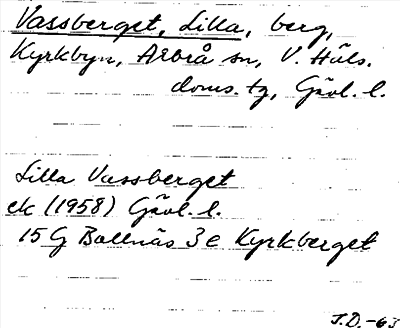 Vassberget, Lilla, berg,
Kyrkbyn, Arbrå sn, V. Häls.
doms. tg, Gävl. l.
Lilla Vassberget
ek (1958) Gävl. l.
15 G Bollnäs 3 e Kyrkberget
J.D.-63